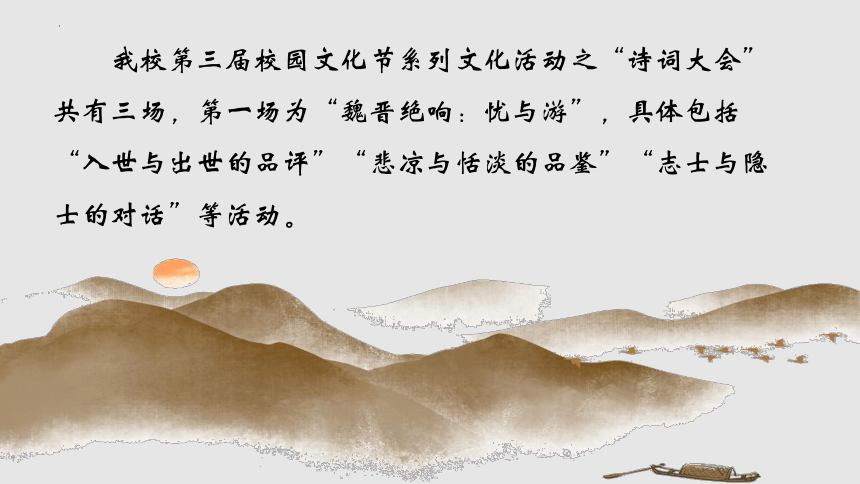 我校第三届校园文化节系列文化活动之“诗词大会”
共有三场，第一场为“魏晋绝响：忧与游”，具体包括
“入世与出世的品评”“悲凉与恬淡的品鉴”“志士与隐
士的对话”等活动。